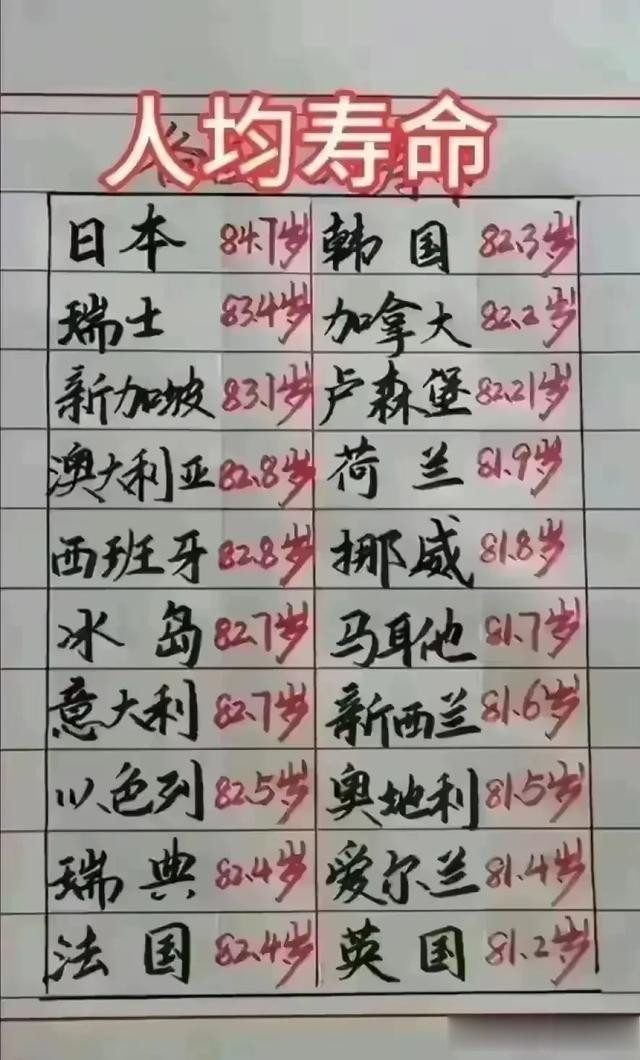 人均寿命
日本 84.7岁 韩国 82.3岁
瑞士 83.4岁 加拿大 82.2岁
新加坡 83.1岁 卢森堡 82.21岁
澳大利亚 82.8岁 荷兰 81.9岁
西班牙 82.8岁 挪威 81.8岁
冰岛 82.7岁 马耳他 81.7岁
意大利 82.7岁 新西兰 81.6岁
以色列 82.5岁 奥地利 81.5岁
瑞典 82.4岁 爱尔兰 81.4岁
法国 82.4岁 英国 81.2岁